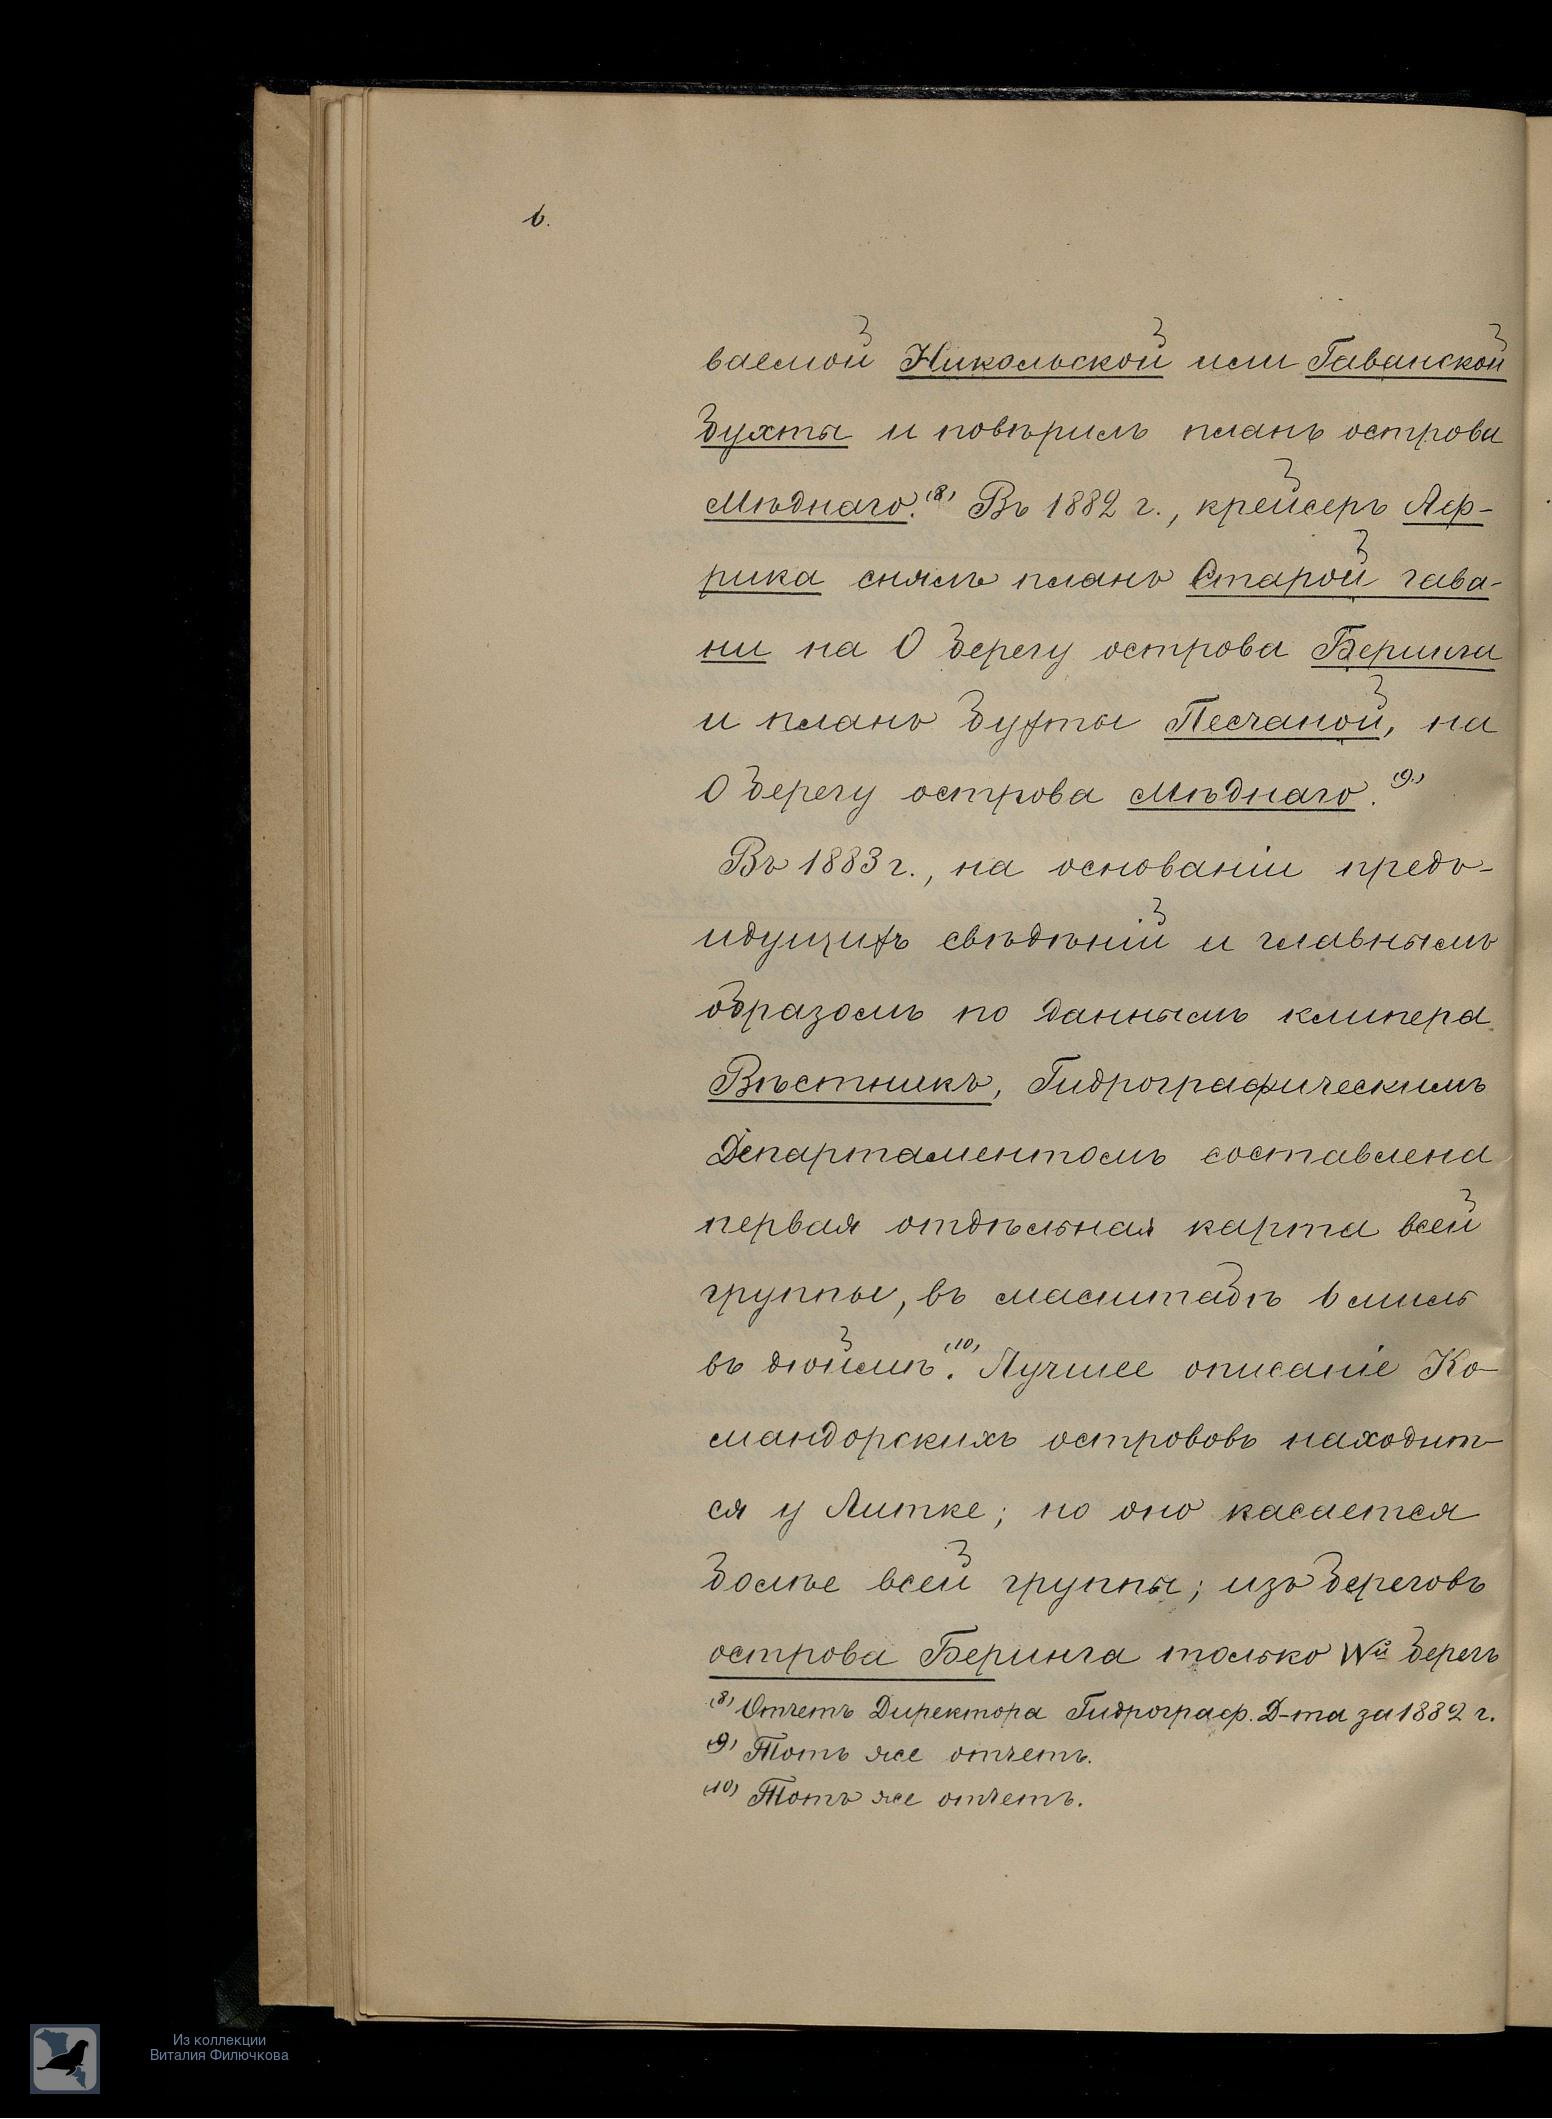 6.
ваемой Никольской или Гаванской
бухты и повѣрилъ планъ острова
Мѣднаго.(8) Въ 1882 г., крейсеръ Аф-
рика снялъ планъ Старой гава-
ни на O берегу острова Беринга
и планъ бухты Песчаной, на
O берегу острова Мѣднаго.(9.)
Въ 1883 г., на основаніи предъ-
идущихъ свѣдѣній и главнымъ
образомъ по даннымъ клипера
Вѣстникъ, Гидрографическимъ
Департаментомъ составлена
первая отдѣльная карта всей
группы, въ масштабѣ 6 миль
въ дюймѣ.(10) Лучшее описаніе Ко-
мандорскихъ острововъ находит-
ся у Литке; но оно касается
болѣе всей группы; изъ береговъ
острова Беринга только Wй берегъ
(8) Отчетъ Директора Гидрограф. Д-та за 1882 г.
(9) Тотъ же отчетъ.
(10) Тотъ же отчетъ.
Из коллекции
Виталия Филючкова